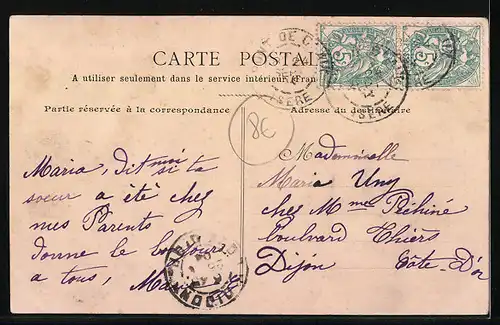 CARTE POSTALE
A utiliser seulement dans le service intérieur (Fran
Partie réservée à la correspondance
Adresse du destinataire
8€
Maria, dit moi si ta
soeur a été chez
mes Parents
donne le bonjour
a tous,
Mademoiselle
Maria Uny
chez Mme Péchiné
boulvard Thiers
Dijon Côte-D'or
ISÈRE
ISÈRE
DIJON
5
5